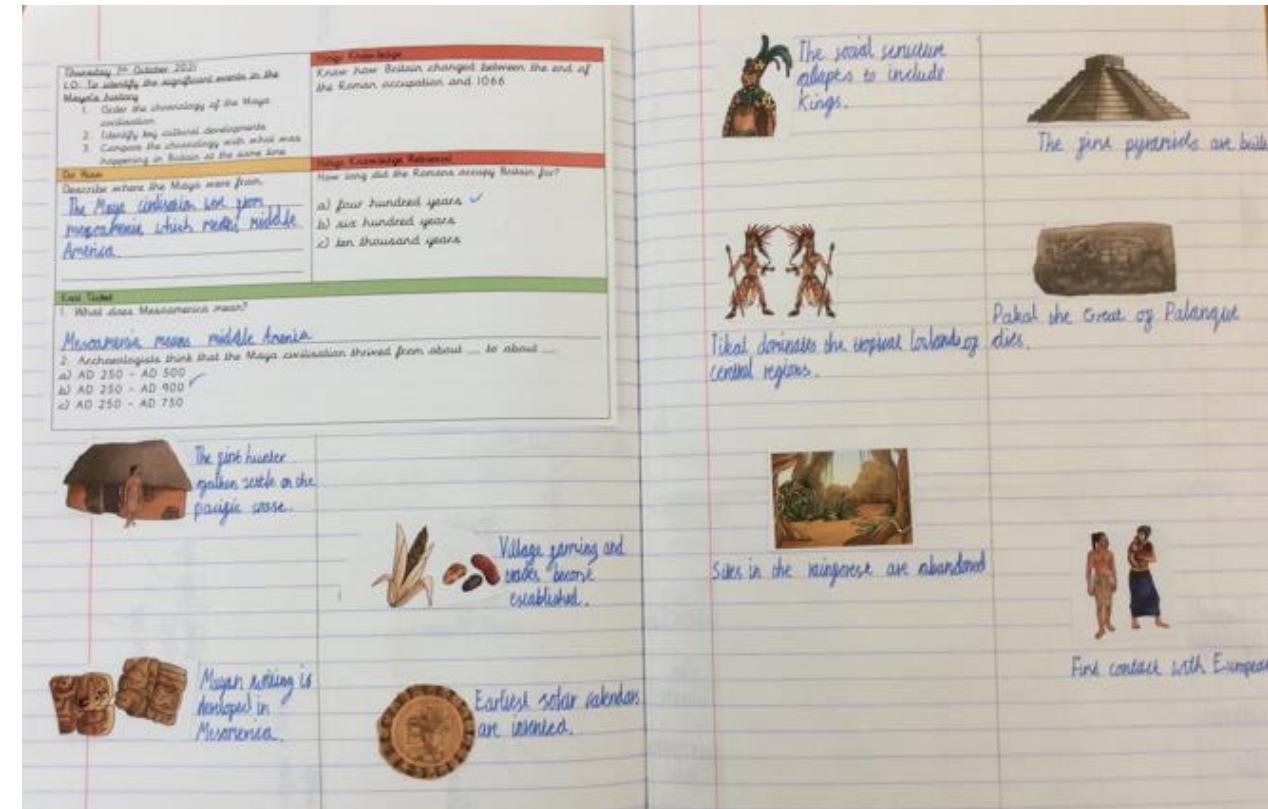 Thursday 7th October 2021
LO: To identify the significant events in the
Maya's history
1. Order the chronology of the Maya
civilisation
2. Identify key cultural developments
3. Compare the chronology with what was
happening in Britain at the same time
Knowledge
Know how Britain changed between the end of
the Roman occupation and 1066
Do Now
Describe where the Maya were from
The Maya civilisation were from
mesoamerica which means middle
America.
Knowledge Retrieval
How long did the Romans occupy Britain for?
a) four hundred years ✓
b) six hundred years
c) ten thousand years
Exit Ticket
1. What does Mesoamerica mean?
Mesoamerica means middle America
2. Archaeologists think that the Maya civilisation thrived from about __ to about __
a) AD 250 - AD 500
b) AD 250 - AD 900 ✓
c) AD 250 - AD 750
The first hunter
gathers settle on the
pacific coast.
Village farming and
trades become
established.
Mayan writing is
developed in
Earliest solar calendars
are invented.
The social structure
adapts to include
Kings.
The first pyramids are built
Tikal dominates the tropical lowlands of
central regions.
Pakal the Great of Palanque
dies.
Sites in the rainforest are abandoned
First contact with European